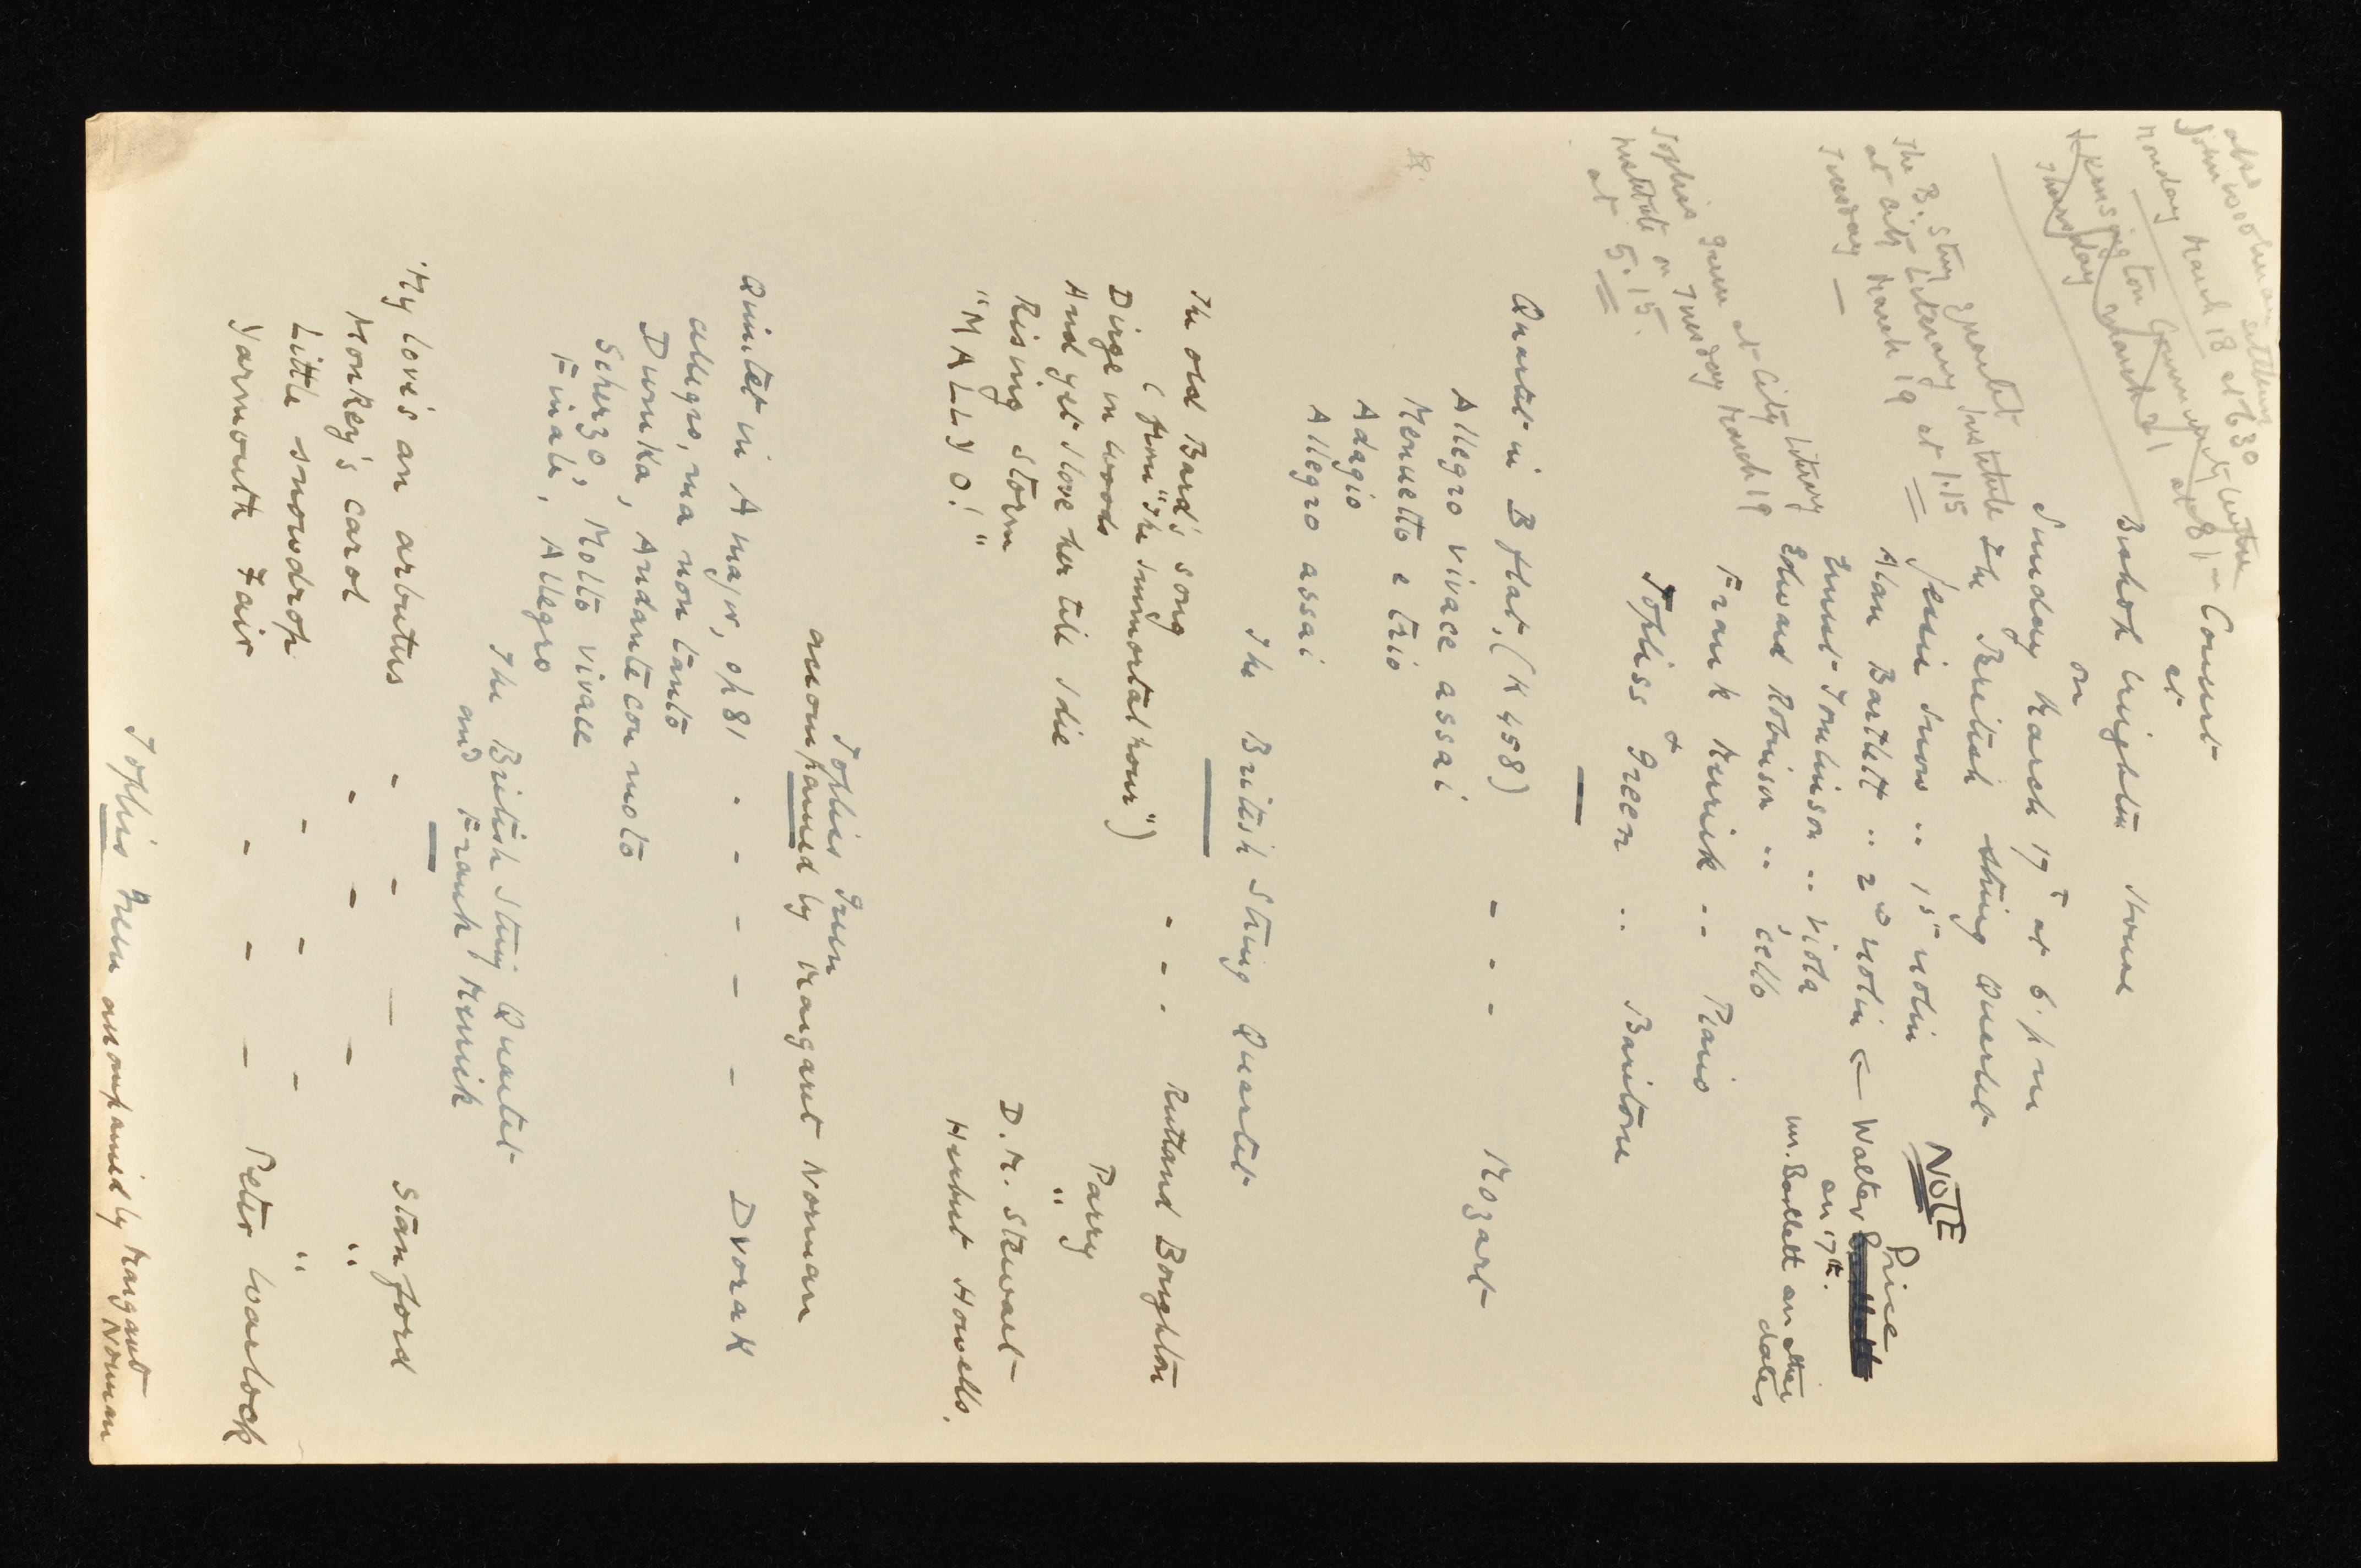 also
John Woolman settlement
Monday March 18 at 6 30
Kensington Community Centre
Thursday March 21 at 8
The B. String Quartet
at City Literary Institute
Tuesday March 19 at 1.15
Topliss Green at City Literary
Institute on Tuesday March 19
at 5.15.
Concert
at
Bishop Creighton House
on
Sunday March 17th at 6. pm
The British String Quartet
Jessie Snow .. 1st violin
Alan Bartlett .. 2nd violin ← Walter Price
on 17th.
NOTE
Mr. Bartlett on other
dates
Ernest Tomlinson .. viola
Edward Robinson .. 'cello
Frank Merrick .. Piano
&
Topliss Green .. Baritone
Quartet in B flat, (K 458) - - - Mozart
Allegro vivace assai
Menuetto e trio
Adagio
Allegro assai
The British String Quartet
The old Bard's song
(from "The Immortal hour") - - - Rutland Boughton
Dirge in woods Parry
And yet I love her till I die "
Rising storm D. M. Stewart
"MALLYO!" Herbert Howells.
Topliss Green
accompanied by Margaret Norman
Quintet in A major, op 81 - - - - - Dvorak
allegro, ma non tanto
Dumka, Andante con moto
Scherzo, Molto vivace
Finale, Allegro
The British String Quartet
and Frank Merrick
'My love's an arbutus - - - Stanford
Monkey's carol - - - "
Little snowdrop - - - "
Yarmouth Fair - - - Peter Warlock
Topliss Green accompanied by Margaret
Norman